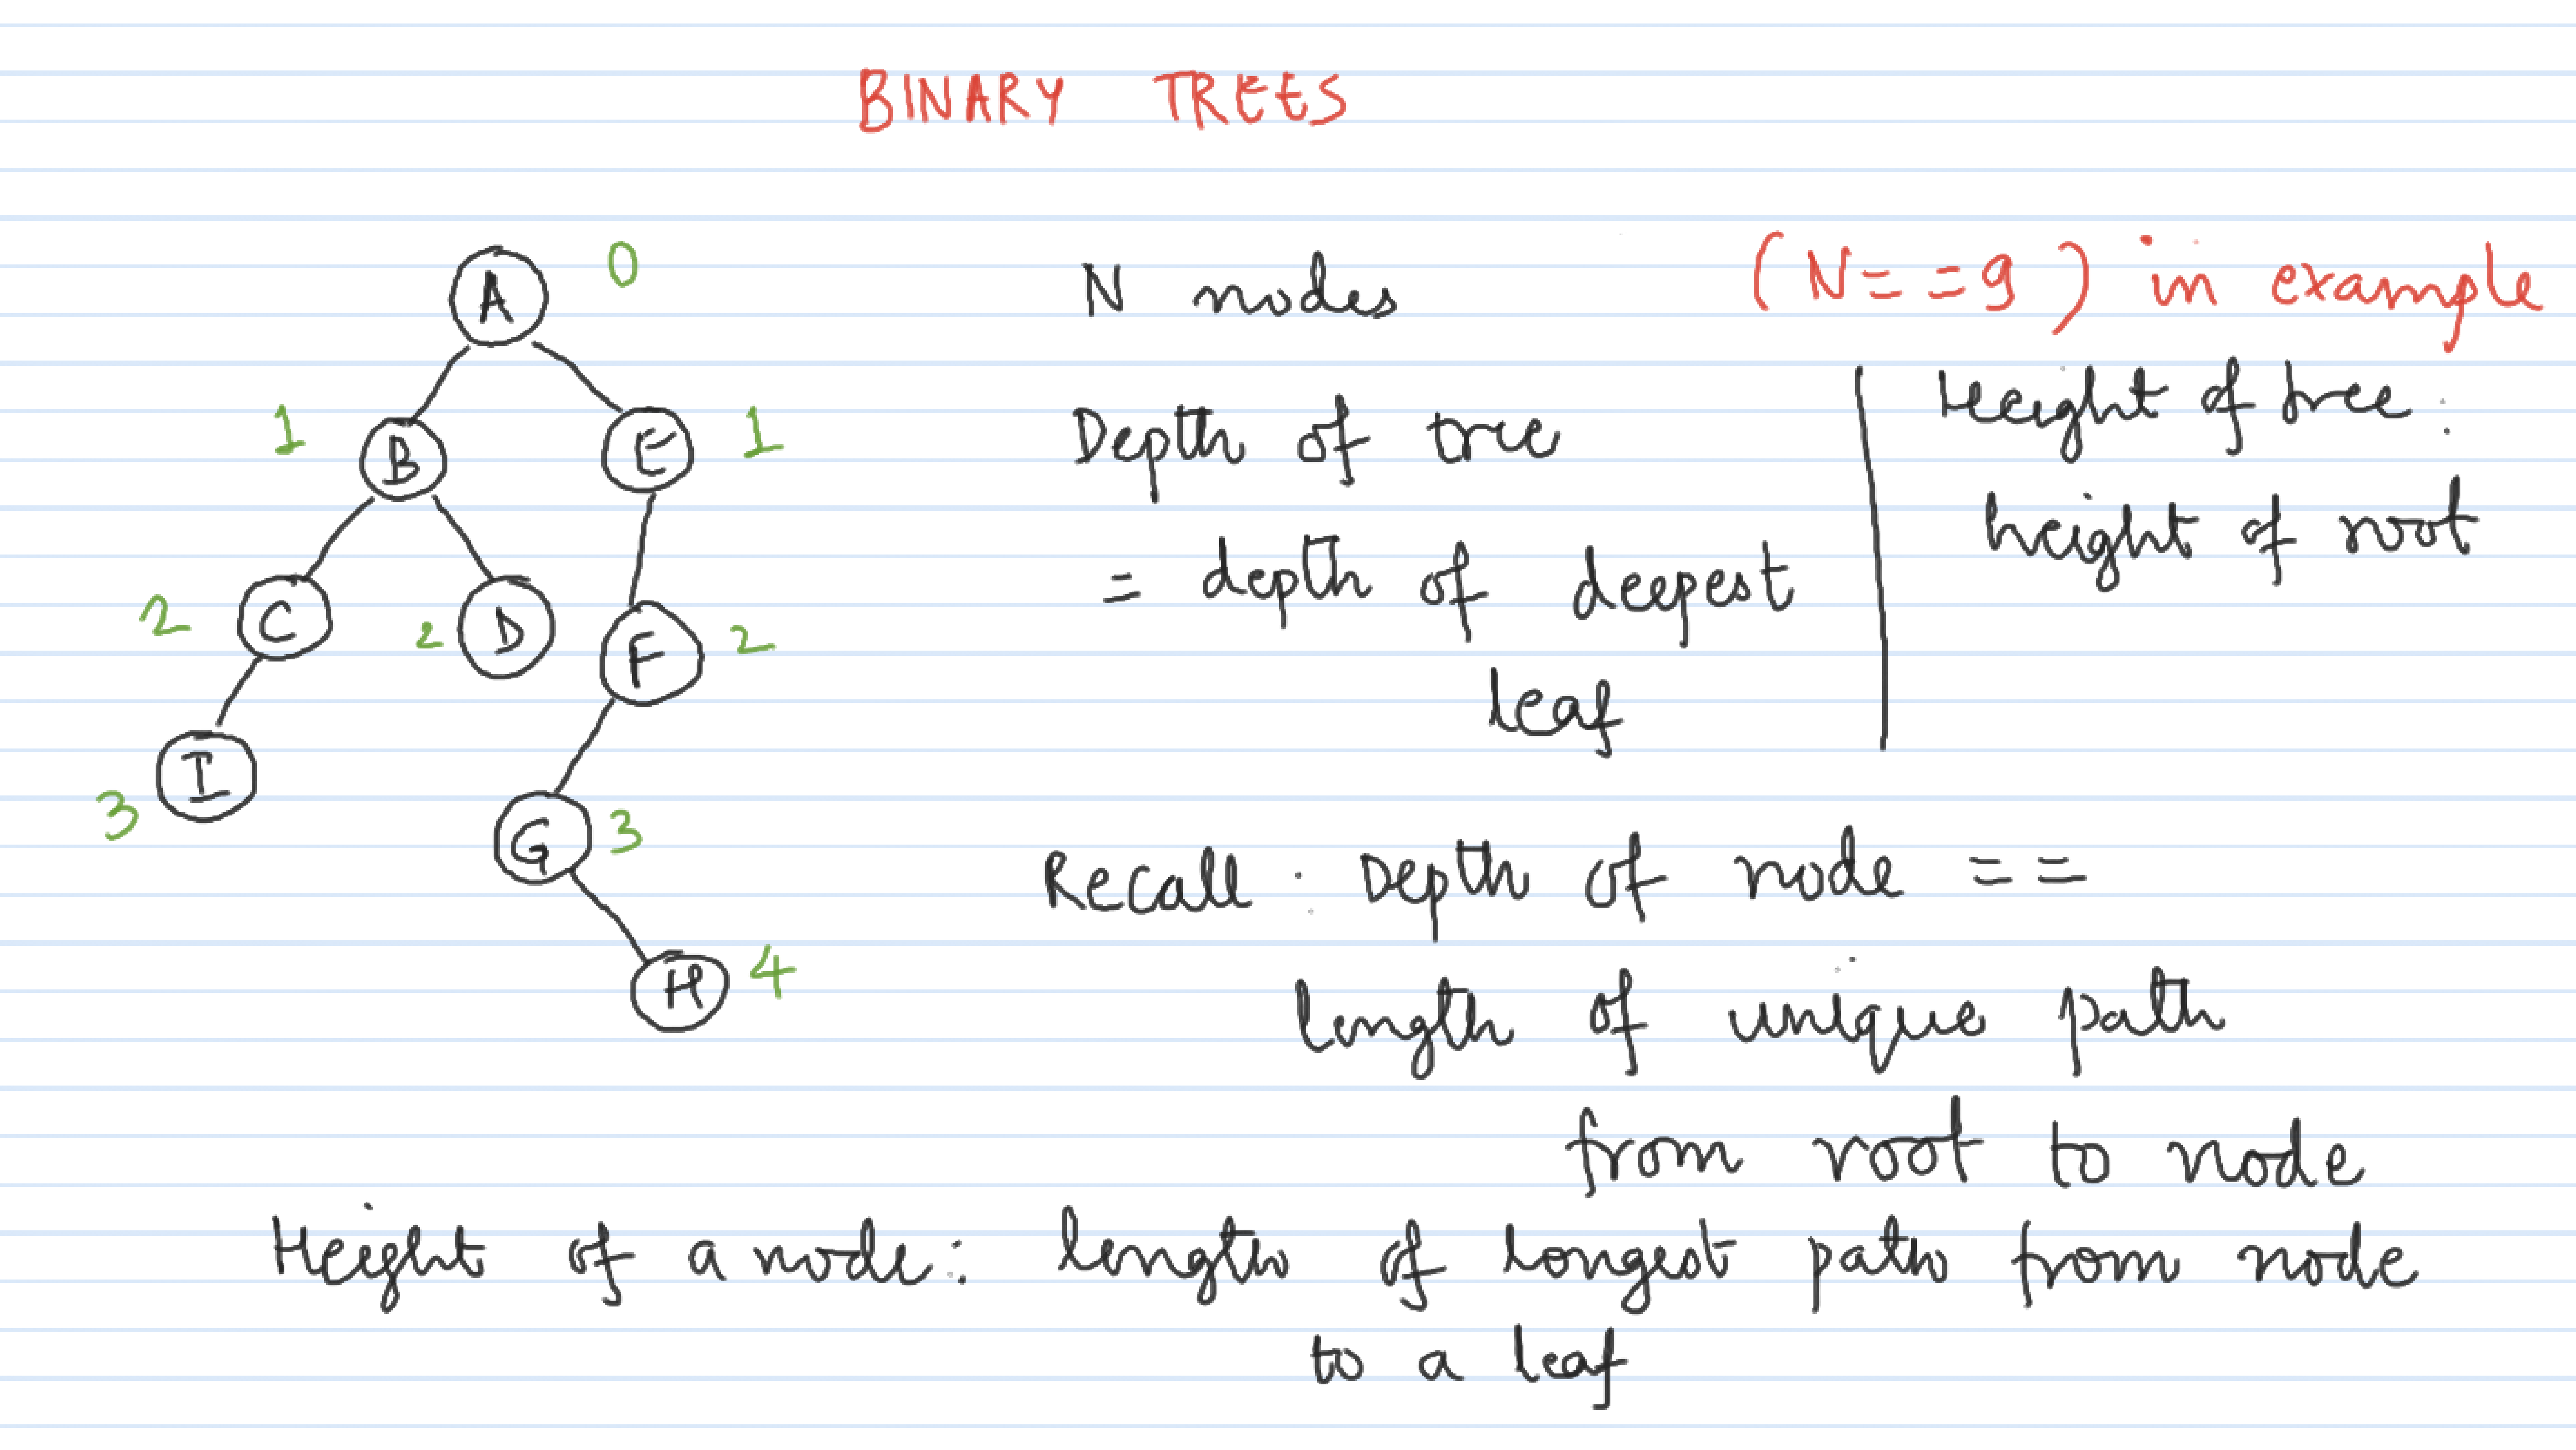 BINARY TREES
A 0
N nodes (N==9) in example
1 B E 1
Depth of tree
= depth of deepest
leaf
Height of tree:
height of root
2 C 2 D F 2
3 I
G 3
H 4
Recall: Depth of node ==
length of unique path
from root to node
Height of a node: length of longest path from node
to a leaf